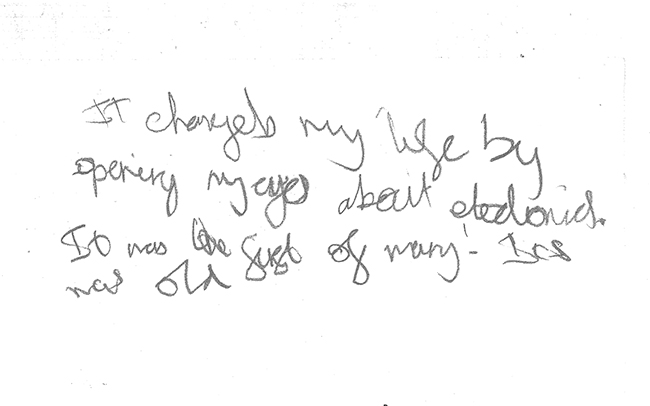 It changed my life by
opening my eyes about electronics.
It was the first of many! - Ics
was old